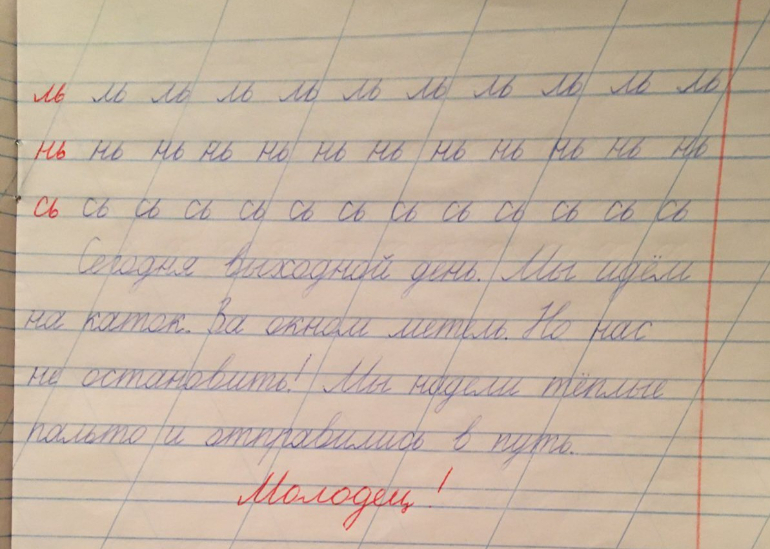 ль ль ль ль ль ль ль ль ль ль ль
нь нь нь нь нь нь нь нь нь нь нь нь
сь сь сь сь сь сь сь сь сь сь сь сь сь
Сегодня выходной день. Мы идём
на каток. За окном метель. Но нас
не остановить! Мы надели тёплые
пальто и отправились в путь.
Молодец!